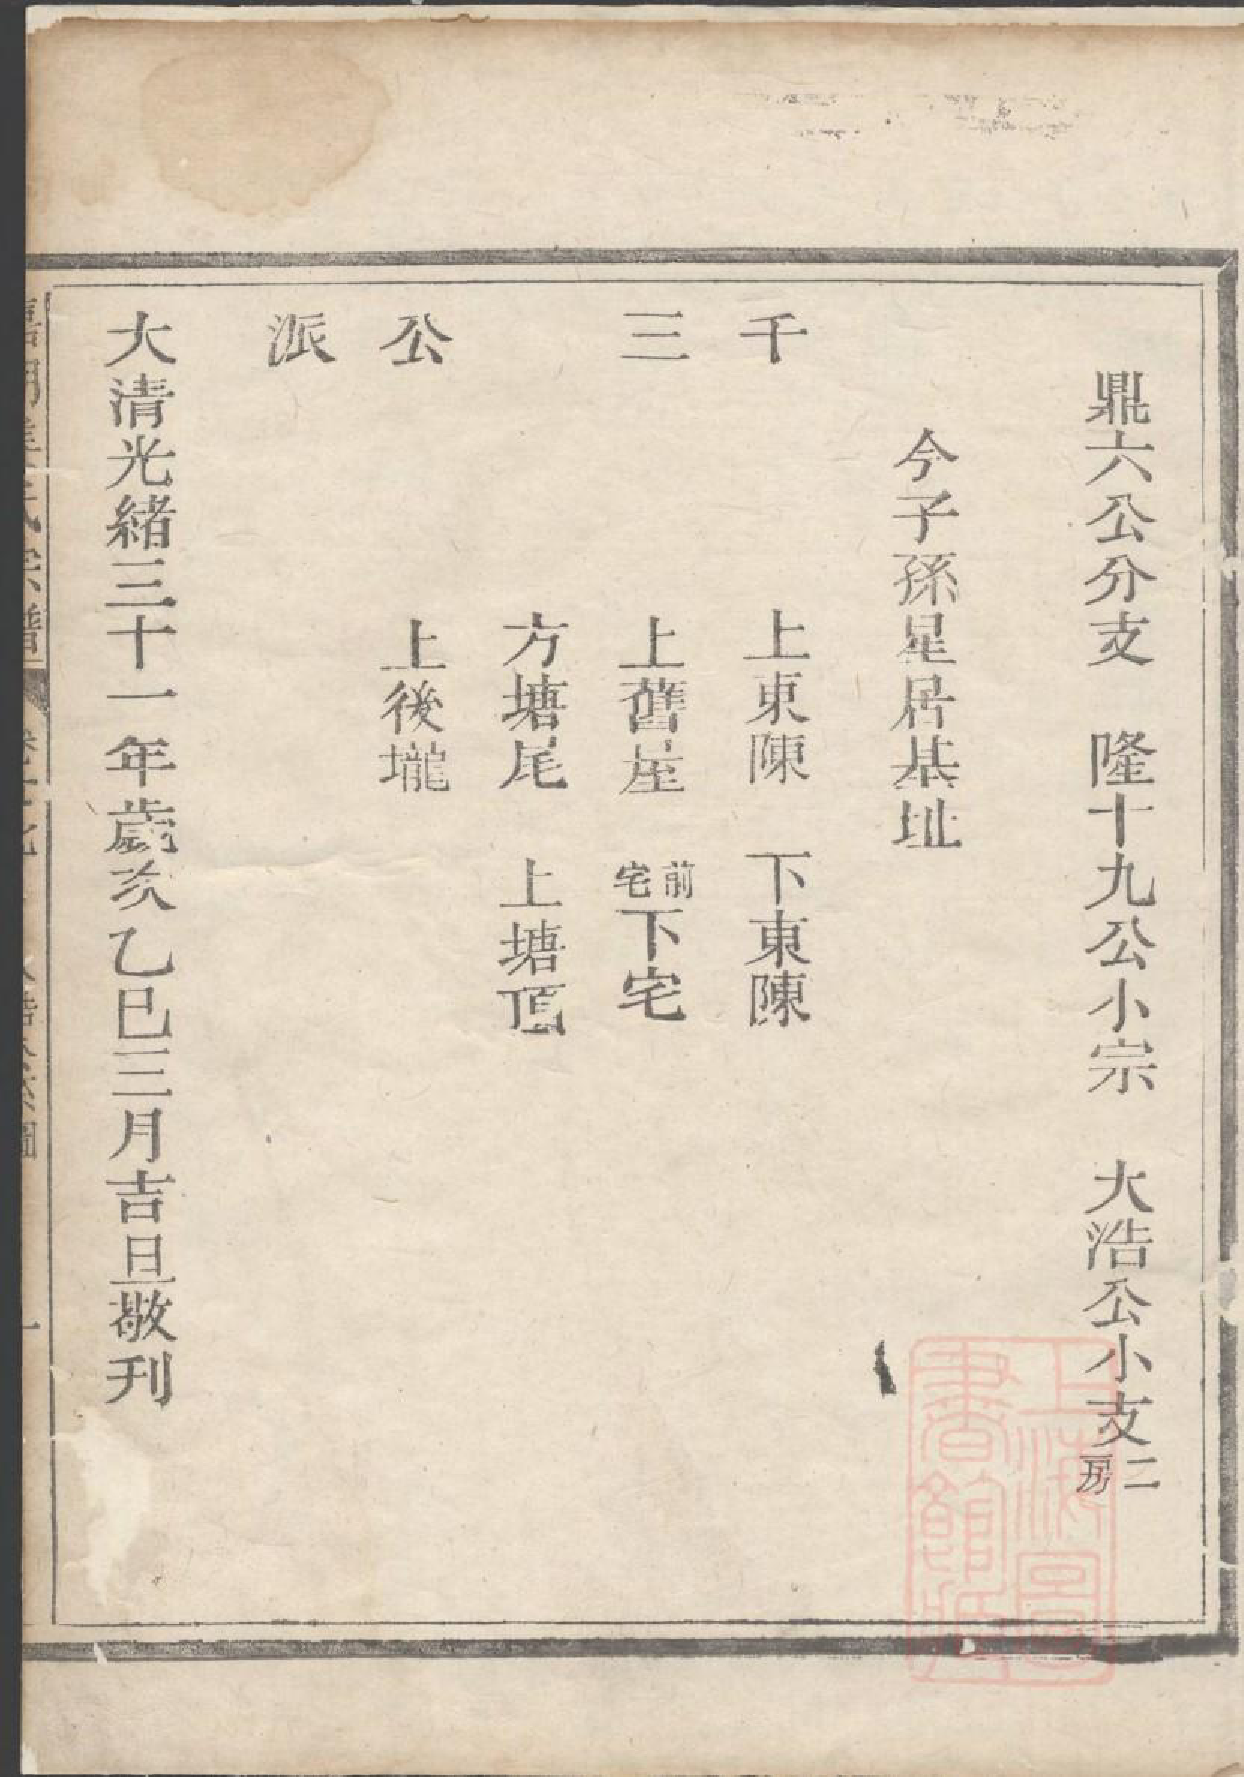 鼎六公分支　隆十九公小宗　大浩公小支二房
今子孫星居基址
千　上東陳　下東陳
三　上舊屋　前宅下宅
方塘尾　上塘頂
公　上後壠
派
大清光緒三十一年歲次乙巳三月吉旦敬刊
氏宗譜
上海圖書館藏